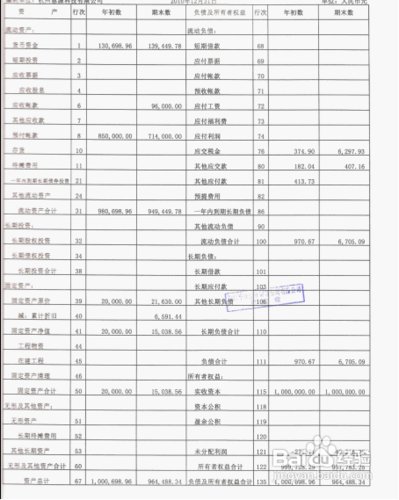 2010年12月31日 单位：人民币元
资 产 行次 年初数 期末数 负债及所有者权益 行次 年初数 期末数
流动资产： 流动负债：
货币资金 1 130,698.96 139,449.78 短期借款 68
短期投资 2 应付票据 69
应收票据 3 应付帐款 70
应收股息 4 预收帐款 71
应收帐款 6 96,000.00 应付工资 72
其他应收款 7 应付福利费 73
预付帐款 8 850,000.00 714,000.00 应付利润 74
存货 10 应交税金 76 374.90 6,297.93
待摊费用 11 其他应交款 80 182.04 407.16
一年内到期长期债券投资 21 其他应付款 81 413.73
其他流动资产 24 预提费用 82
流动资产合计 31 980,698.96 949,449.78 一年内到期长期负债 86
长期投资： 其他流动负债 90
长期股权投资 32 流动负债合计 100 970.67 6,705.09
长期债权投资 34 长期负债：
长期投资合计 38 长期借款 101
固定资产： 长期应付款 103
固定资产原价 39 20,000.00 21,630.00 其他长期负债 106
减：累计折旧 40 6,591.44
固定资产净值 41 20,000.00 15,038.56 长期负债合计 110
工程物资 44
在建工程 45 负债合计 111 970.67 6,705.09
固定资产清理 46 所有者权益：
固定资产合计 50 20,000.00 15,038.56 实收资本 115 1,000,000.00 1,000,000.00
无形及其他资产： 资本公积 118
无形资产 51 盈余公积 119
长期待摊费用 52 120
其他长期资产 53 未分配利润 121
无形及其他资产合计 60 所有者权益合计 122
资产总计 67 1,000,698.96 964,488.34 负债及所有者权益合计 135 1,000,698.96 964,488.34
Baidu经验
jingyan.baidu.com